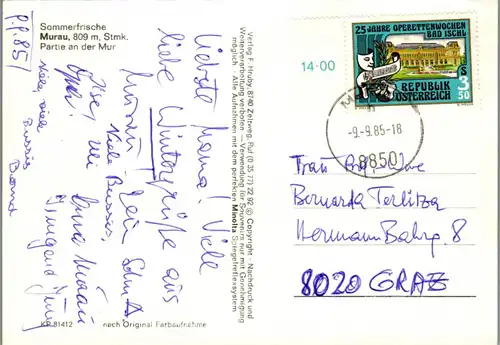 Sommerfrische
Murau, 809 m, Stmk.
Partie an der Mur
9.9.85
Liebste Mama! Viele
liebe Wintergrüße aus
Murau! Dein
Viele Bussis,
Anna
Irmgard
Viele, viele
Bussis
KP 81412
nach Original Farbaufnahme
Verlag F. Hruby, 8740 Zeltweg, Ruf (0 35 77) 22 92 © Copyright - Nachdruck und
Weiterverarbeitung verboten — Verwendung für Souvenirs nur mit Genehmigung
möglich - Alle Aufnahmen mit dem perfekten Minolta Spiegelreflexsystem
14·00
25 JAHRE OPERETTENWOCHEN
BAD ISCHL
REPUBLIK
ÖSTERREICH
S
3
50
-9.-9.85-18
8850
Frau
Bernarda Terlitza
Hermann Bahrg. 8
8020 GRAZ